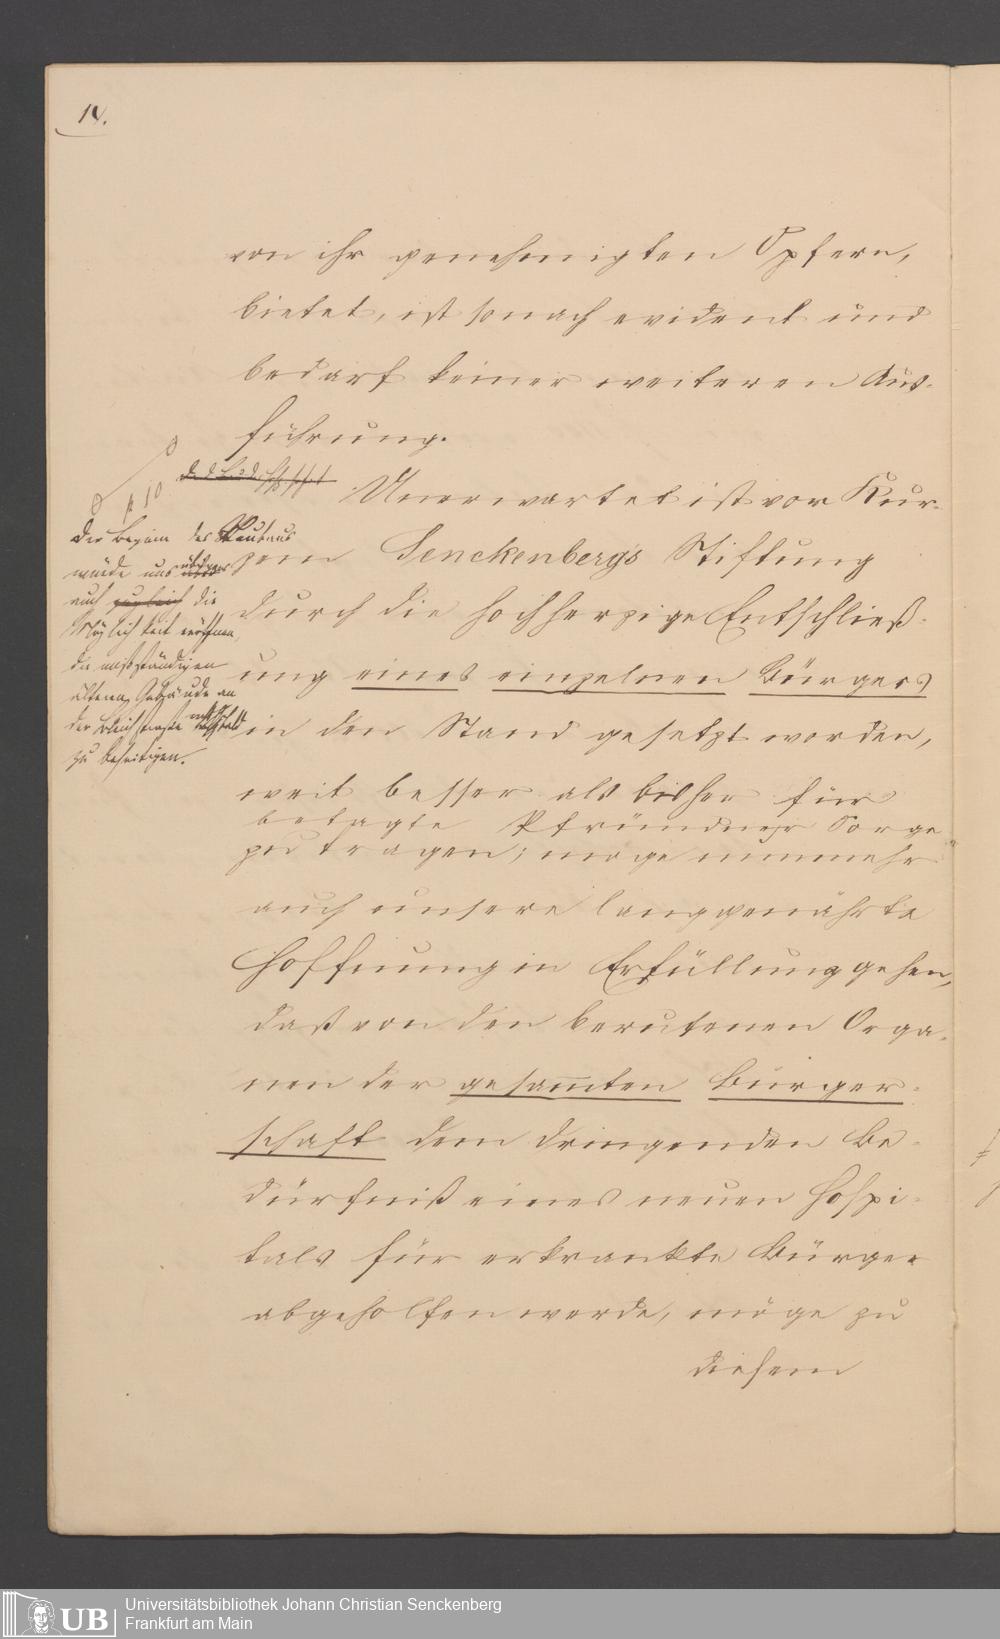 14.
von ihr genehmigten Opfern,
bietet, ist sonach evident und
bedarf keiner weiteren Aus-
führung.
Unerwartet ist vor Kur-
zem Senckenberg's Stiftung
durch die hochherzige Entschließ-
ung eines einzelnen Bürgers
in den Stand gesetzt worden,
weit besser als bisher für
betagte Pfründner Sorge
zu tragen; möge nunmehr
auch unsere langgenährte
Hoffnung in Erfüllung gehen,
daß von den berufenen Orga-
nen der gesam̅ten Bürger-
schaft dem dringenden Be-
dürfniß eines neuen Hospi-
tals für erkrankte Bürger
abgeholfen werde, möge zu
diesem
p 10
Der Beginn des Neubaus
würde uns übrigens
auch zugleich die
Möglichkeit eröffnen,
die mißständigen
älteren Gebäude an
der Bleichstraße
zu beseitigen.
UB
Universitätsbibliothek Johann Christian Senckenberg
Frankfurt am Main